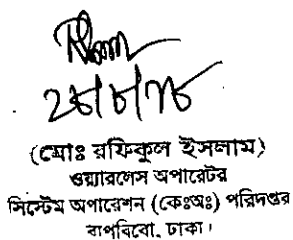 (মোঃ রফিকুল ইসলাম)
ওয়্যারলেস অপারেটর
সিস্টেম অপারেশন (কেঃঅঃ) পরিদপ্তর
বাপবিবো, ঢাকা।